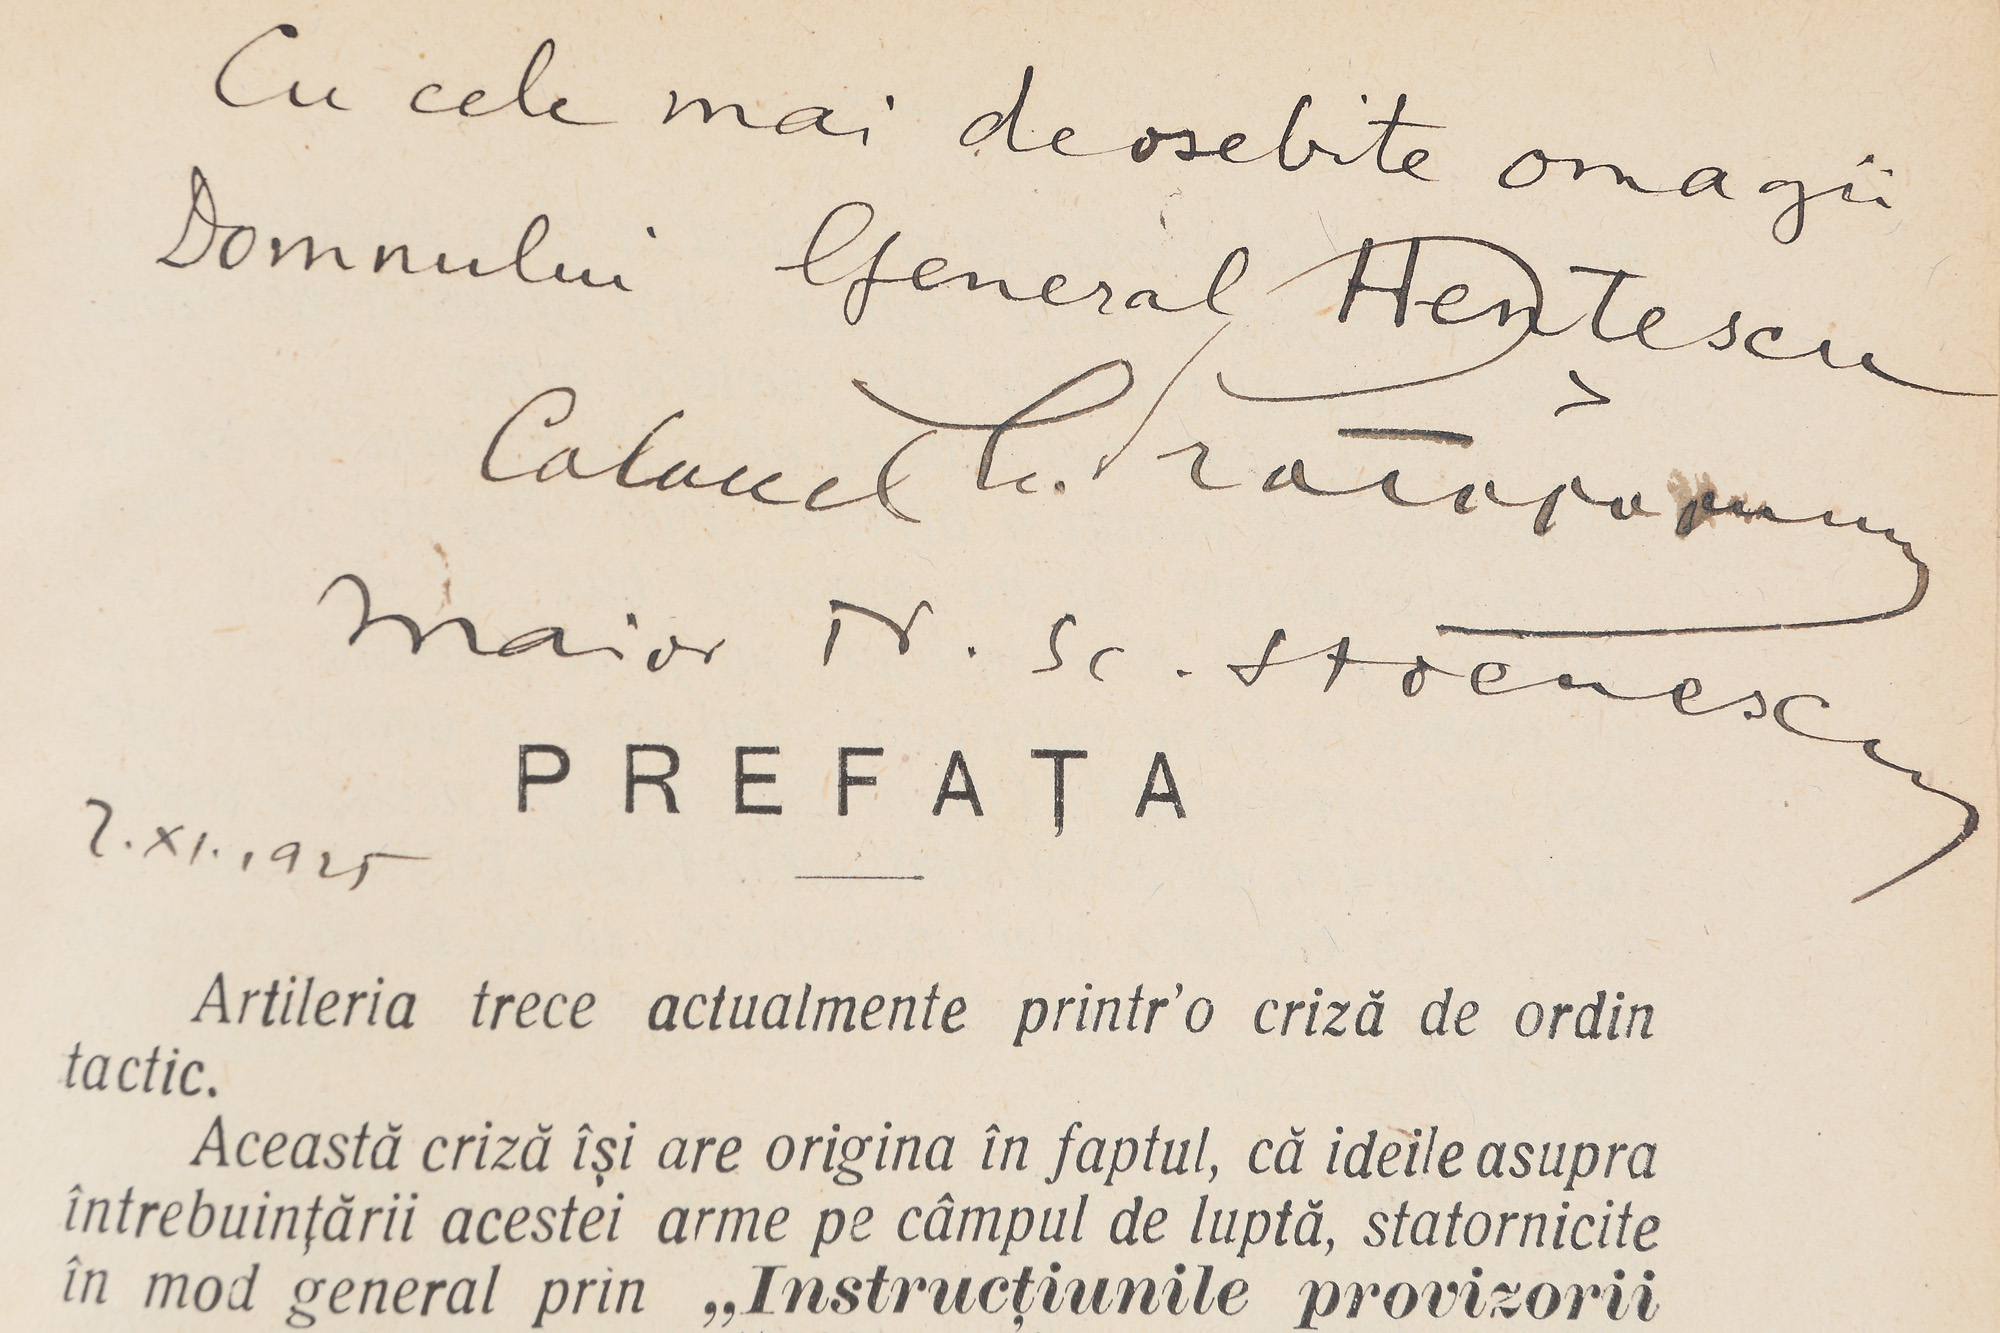 Cu cele mai deosebite omagii
Domnului General Hențescu
Colonel
Maior N. Sc. Stoenescu
PREFAȚA
7.XI.1925
Artileria trece actualmente printr'o criză de ordin
tactic.
Această criză își are origina în faptul, că ideile asupra
întrebuințării acestei arme pe câmpul de luptă, statornicite
în mod general prin „Instrucțiunile provizorii